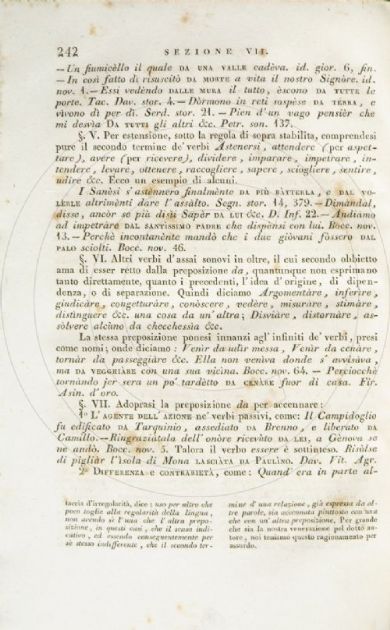 242 SEZIONE VII.
—Un fiumicèllo il quale DA UNA VALLE cadèva. id. gior. 6, fin.
— In così fatto dì risuscitò DA MORTE a vita il nostro Signóre. id.
nov. 1.—Essi vedèndo DALLE MURA il tutto, èscono DA TUTTE le
porte. Tac. Dav. stor. 4.—Dòrmono in reti sospèse DA TERRA, e
vivono dì per dì. Serd. stor. 21.—Pien d'un vago pensièr che
mi desvìa DA TUTTI gli altri &c. Petr. son. 137.
§. V. Per estensione, sotto la regola di sopra stabilita, comprendesi
pure il secondo termine de' verbi Astenersi, attendere (per aspet-
tare), avere (per ricevere), dividere, imparare, impetrare, in-
tendere, levare, ottenere, raccogliere, sapere, sciogliere, sentire,
udire &c. Ecco un esempio di alcuni.
I Sanèsi s'astènnero finalmènte DA PIÙ BÀTTERLA, e DAL VO-
LÉRLE altrimènti dare l'assàlto. Segn. stor. 14, 379.—Dimàndal,
disse, ancór se più disìi Sapèr DA LUI &c. D. Inf. 22.—Andiamo
ad impetràre DAL SANTÌSSIMO PADRE che dispènsi con lui. Bocc. nov.
13.—Perchè incontanènte mandò che i due giovani fòssero DAL
PALO sciolti. Bocc. nov. 46.
§. VI. Altri verbi d'assai sonovi in oltre, il cui secondo obbietto
ama di esser retto dalla preposizione da, quantunque non esprimano
tanto direttamente, quanto i precedenti, l'idea d'origine, di dipen-
denza, o di separazione. Quindi diciamo Argomentàre, inferìre,
giudicàre, congetturàre, conòscere, vedère, misuràre, stimàre,
distìnguere &c. una cosa da un' altra; Disviàre, distornàre, as-
sòlvere alcùno da checchessìa &c.
La stessa preposizione ponesi innanzi agl' infiniti de' verbi, presi
come nomi; onde diciamo: Venìr da udìr messa, Venìr da cenàre,
tornàr da passeggiàre &c. Ella non venìva donde s' avvisàva,
ma DA VEGGHIÀRE con una sua vicina. Bocc. nov. 64. — Perciocchè
tornàndo jer sera un po' tardètto DA CENÀRE fuor di casa. Fir.
Asin. d'oro.
§. VII. Adoprasi la preposizione da per accennare:
1º L' AGENTE DELL' AZIONE ne' verbi passivi, come: Il Campidoglio
fu edificato DA Tarquinio, assediato DA Brenno, e liberato DA
Camillo.—Ringraziàtala dell' onóre ricevùto DA LEI, a Gènova se
ne andò. Bocc. nov. 5. Talora il verbo essere è sottinteso. Risòlse
di pigliàr l'ìsola di Mona LASCIÀTA DA PAULÌNO. Dav. Vit. Agr.
2º DIFFERENZA e CONTRARIETÀ, come: Quand' era in parte al-
taccia d'irregolarità, dice: uso per altro che
poco toglie alla regolarità della lingua,
non avendo sì l'una che l'altra prepo-
sizione, in questi casi, che il senso indi-
cativo, ed essendo conseguentemente per
sè stesso indifferente, che il secondo ter-
mine d' una relazione, già espressa da al-
tre parole, sia accennato piuttosto con una
che con un' altra preposizione. Per grande
che sia la nostra venerazione pel dotto au-
tore, noi teniamo questo ragionamento per
assurdo.